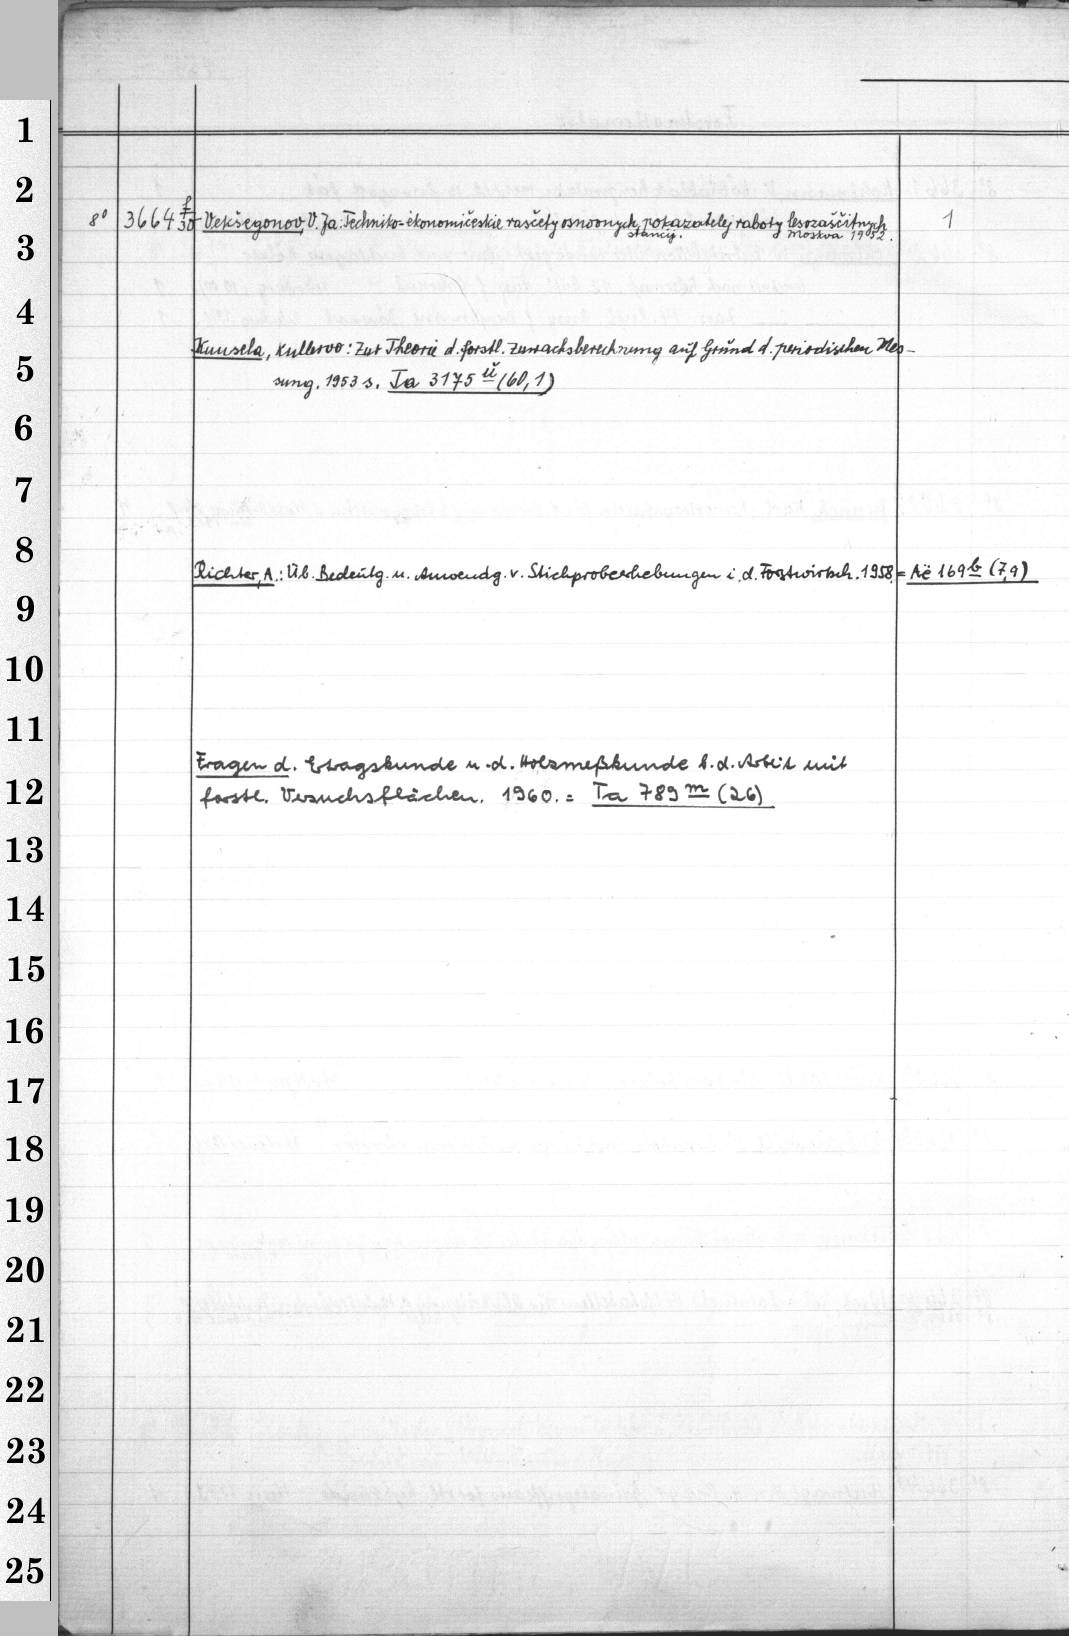 1
2
8° 3664 f/30 Vekšegonov, V. Ja: Techniko-ėkonomičeskie rasčety osnovnych pokazatelej raboty lesozaščitnych 1
stancij. Moskva 1952.
3
4
Kuusela, Kullervo: Zur Theorie d. forstl. Zuwachsberechnung auf Grund d. periodischen Mes-
5
sung. 1953 s. Ta 3175 ü (60,1)
6
7
8
Richter, A.: Üb. Bedeutg. u. Anwendg. v. Stichprobeerhebungen i. d. Forstwirtsch. 1958 = Aë 169 b (7,9)
9
10
11
Fragen d. Ertragskunde u. d. Holzmeßkunde b. d. Arbeit mit
12
forstl. Versuchsflächen. 1960. = Ta 789 m (26)
13
14
15
16
17
18
19
20
21
22
23
24
25